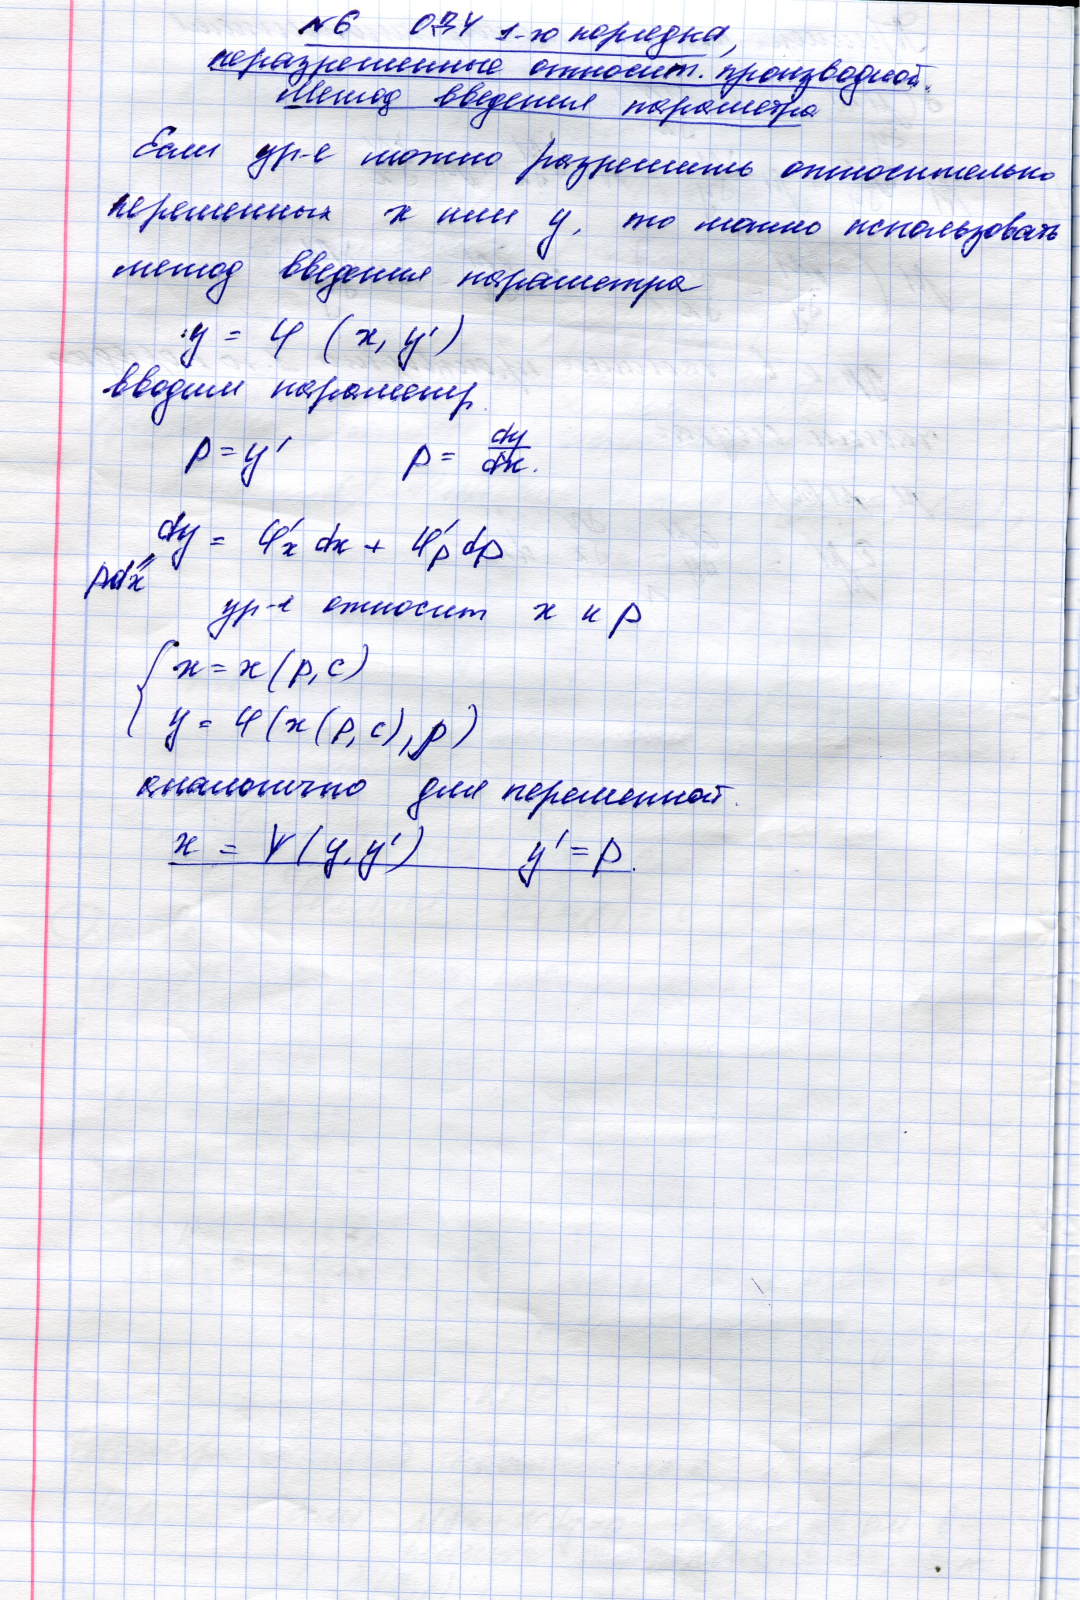 №6 ОДУ 1-го порядка,
неразрешенные относит. производной.
Метод введения параметра
Если ур-е можно разрешить относительно
переменных x или y, то можно использовать
метод введения параметра
y = φ (x, y')
вводим параметр.
p = y' p = dy/dx.
dy = φ'x dx + φ'p dp
"
pdx
ур-е относит x и p
{ x = x(p, c)
y = φ(x(p, c), p)
аналогично для переменной.
x = ψ(y, y') y' = p.